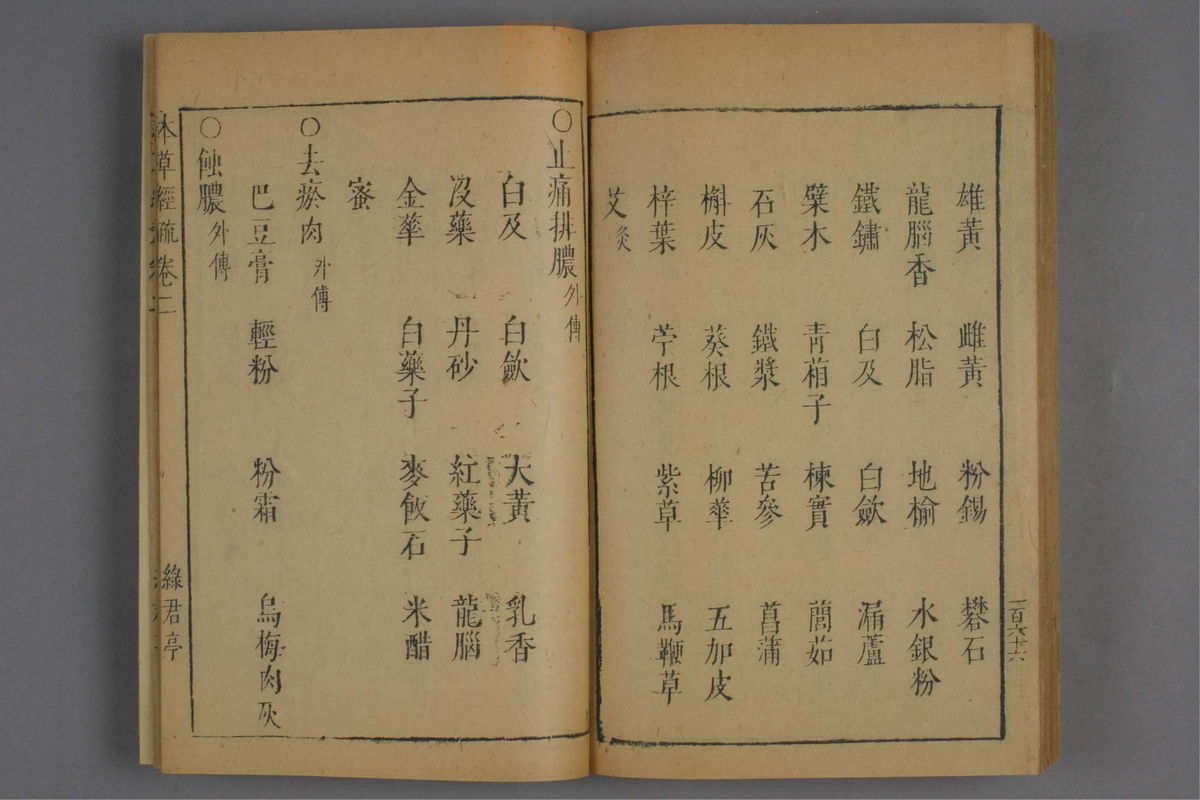 雄黃 雌黃 粉錫 礬石
龍腦香 松脂 地榆 水銀粉
鐵鏽 白及 白歛 漏蘆
櫱木 青葙子 楝實 䕡茹
石灰 鐵漿 苦參 菖蒲
槲皮 葵根 柳華 五加皮
梓葉 苧根 紫草 馬鞭草
艾灸
一百六十六
○止痛排膿外傅
白及 白歛 大黃 乳香
沒藥 丹砂 紅藥子 龍腦
金華 白藥子 麥飯石 米醋
蜜
○去瘀肉外傅
巴豆膏 輕粉 粉霜 烏梅肉灰
○蝕膿外傅
本草經疏卷二 綠君亭